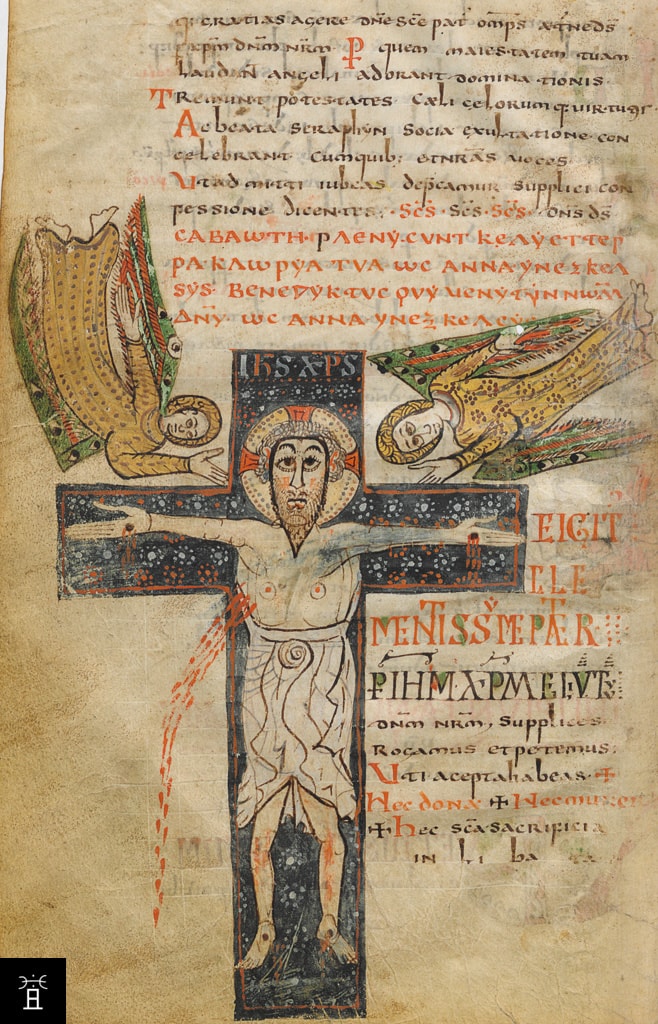 GRATIAS AGERE DNE SCE PAT OMPS AETNE DS
P XPM DNM NRM P QUEM MAIESTATEM TUAM
LAUDAN ANGELI ADORANT DOMINATIONIS
TREMUNT POTESTATES CAELI CELORUMQ VIRTUTES
AC BEATA SERAPHYN SOCIA EXULTATIONE CON
CELEBRANT CUMQUIB: ET NRAS VOCES
UT ADMITTI IUBEAS DEPCAMUR SUPPLICI CON
FESSIONE DICENTES; SCS · SCS · SCS · DNS DS
CABAWTH · PLENY · CVNT KELY ET TER
PA KLWPYA TVA WC ANNA YNEZKEL
SYS · BENEDYKTVC QVY VENYT YN NWM
DNY WC ANNA YNEZKELCYS
IHS XPS
TE IGIT
CLE
MENTISSYME PATER
P IHM XPM FILIVM TVVM
DNM NRM, SUPPLICES
ROGAMUS ET PETEMUS:
UTI ACEPTA HABEAS ✠
HEC DONA ✠ HEC MUNERA
✠ HEC SCA SACRIFICIA
IN LI BA TA